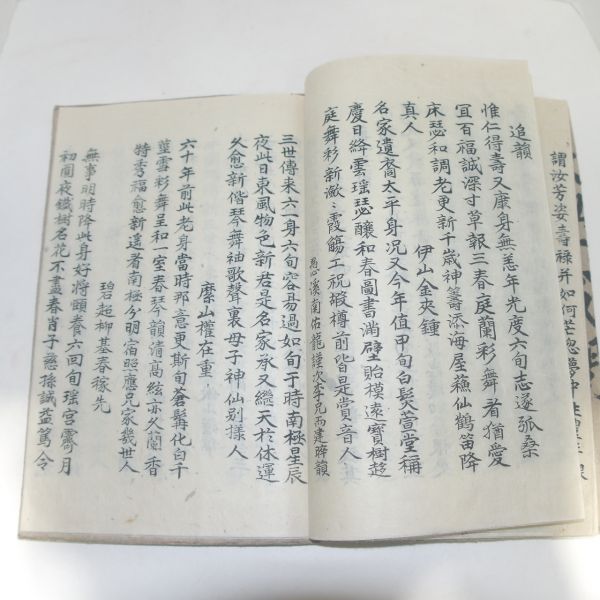 謂汝芳姿壽祿并如何茫忽夢中
追韻
惟仁得壽又康身無恙年光度六旬志遂弧桑
宜百福誠深寸草報三春庭蘭彩舞者猶愛
床瑟和調老更新千歲神籌添海屋蘓仙鶴笛降
真人
伊山金夾鍾
名家遺裔太平身况又今年值甲旬白髮萱堂稱
慶日絳雲瑶瑟醸和春圖書滿壁貽模遠寶樹趍
庭舞彩新瀲灩霞觴工祝嘏樽前皆是賞音人
慈溪南佑龍謹次年兄而建晬韻
三世傳來六一身六旬容昜過如旬于時南極星辰
夜此日東風物色新君是名家承又繼天於休運
久愈新偕琴舞袖歌聲裏母子神仙别樣人
縻山權在重
六十年前此老身當時那意更斯旬蒼髯化白千
莖雪彩舞呈和一室春琴韻清高絃亦久蘭香
特秀福愈新遥看南極分明宿照應兄家幾世人
碧超柳基春稼先
無事明時降此身好將頤養六回旬瑶宮霽月
初圓夜鐵樹名花不盡春肖子慈孫誠益篤令